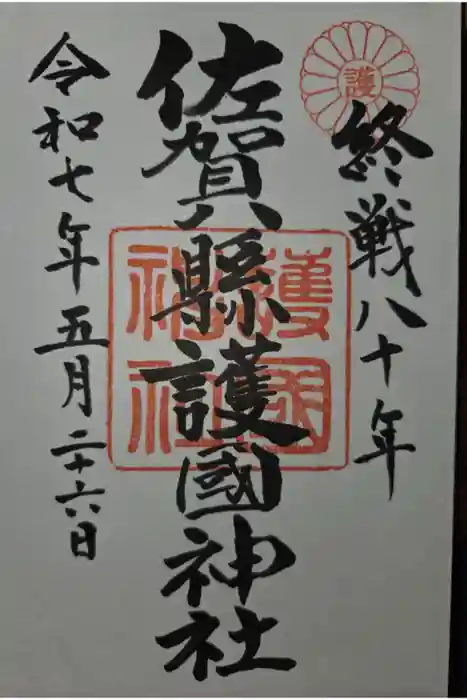 終戦八十年
護
佐賀縣護國神社
護國
神社
令和七年五月二十六日